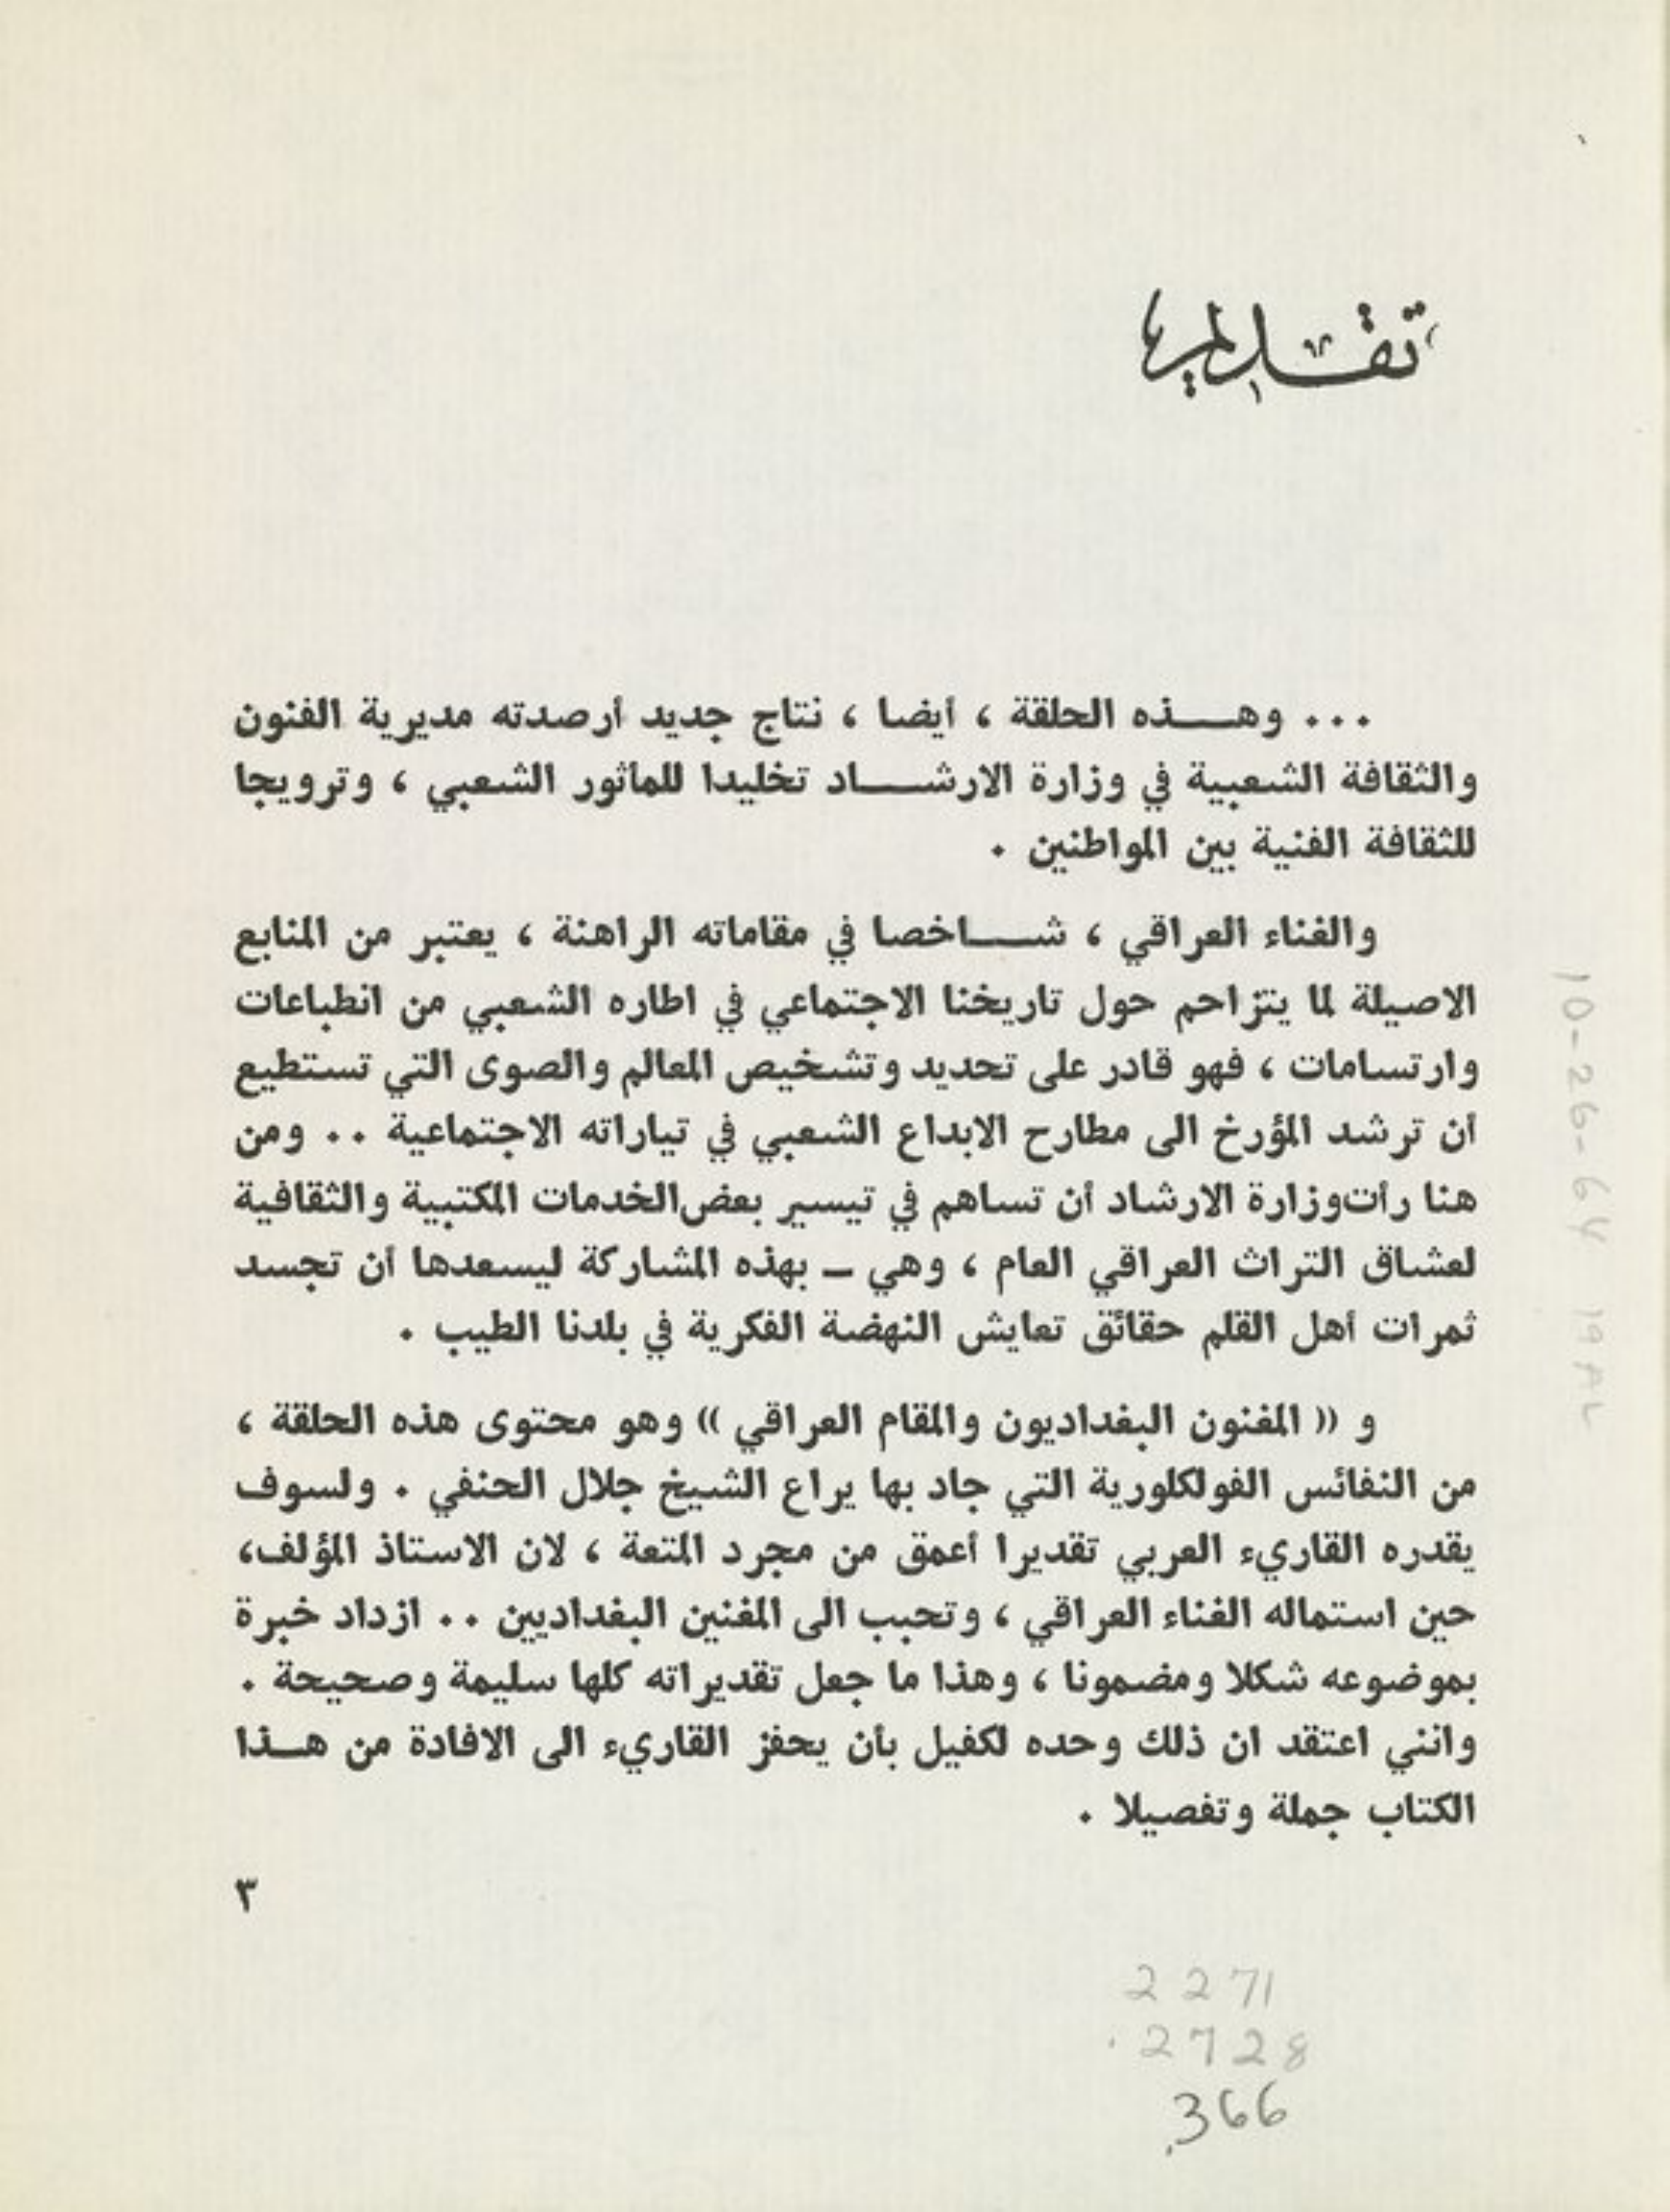 تقديم
... وهـــذه الحلقة ، أيضا ، نتاج جديد أرصدته مديرية الفنون
والثقافة الشعبية في وزارة الارشـــاد تخليدا للمأثور الشعبي ، وترويجا
للثقافة الفنية بين المواطنين .
والغناء العراقي ، شـــاخصا في مقاماته الراهنة ، يعتبر من المنابع
الاصيلة لما يتزاحم حول تاريخنا الاجتماعي في اطاره الشعبي من انطباعات
وارتسامات ، فهو قادر على تحديد وتشخيص المعالم والصوى التي تستطيع
أن ترشد المؤرخ الى مطارح الابداع الشعبي في تياراته الاجتماعية .. ومن
هنا رأت وزارة الارشاد أن تساهم في تيسير بعض الخدمات المكتبية والثقافية
لعشاق التراث العراقي العام ، وهي ــ بهذه المشاركة ليسعدها أن تجسد
ثمرات أهل القلم حقائق تعايش النهضة الفكرية في بلدنا الطيب .
و « المغنون البغداديون والمقام العراقي » وهو محتوى هذه الحلقة ،
من النفائس الفولكلورية التي جاد بها يراع الشيخ جلال الحنفي . ولسوف
يقدره القاريء العربي تقديرا أعمق من مجرد المتعة ، لان الاستاذ المؤلف،
حين استماله الغناء العراقي ، وتحبب الى المغنين البغداديين .. ازداد خبرة
بموضوعه شكلا ومضمونا ، وهذا ما جعل تقديراته كلها سليمة وصحيحة .
وانني اعتقد ان ذلك وحده لكفيل بأن يحفز القاريء الى الافادة من هــذا
الكتاب جملة وتفصيلا .
٣
2271
.2728
.366
10-26-64